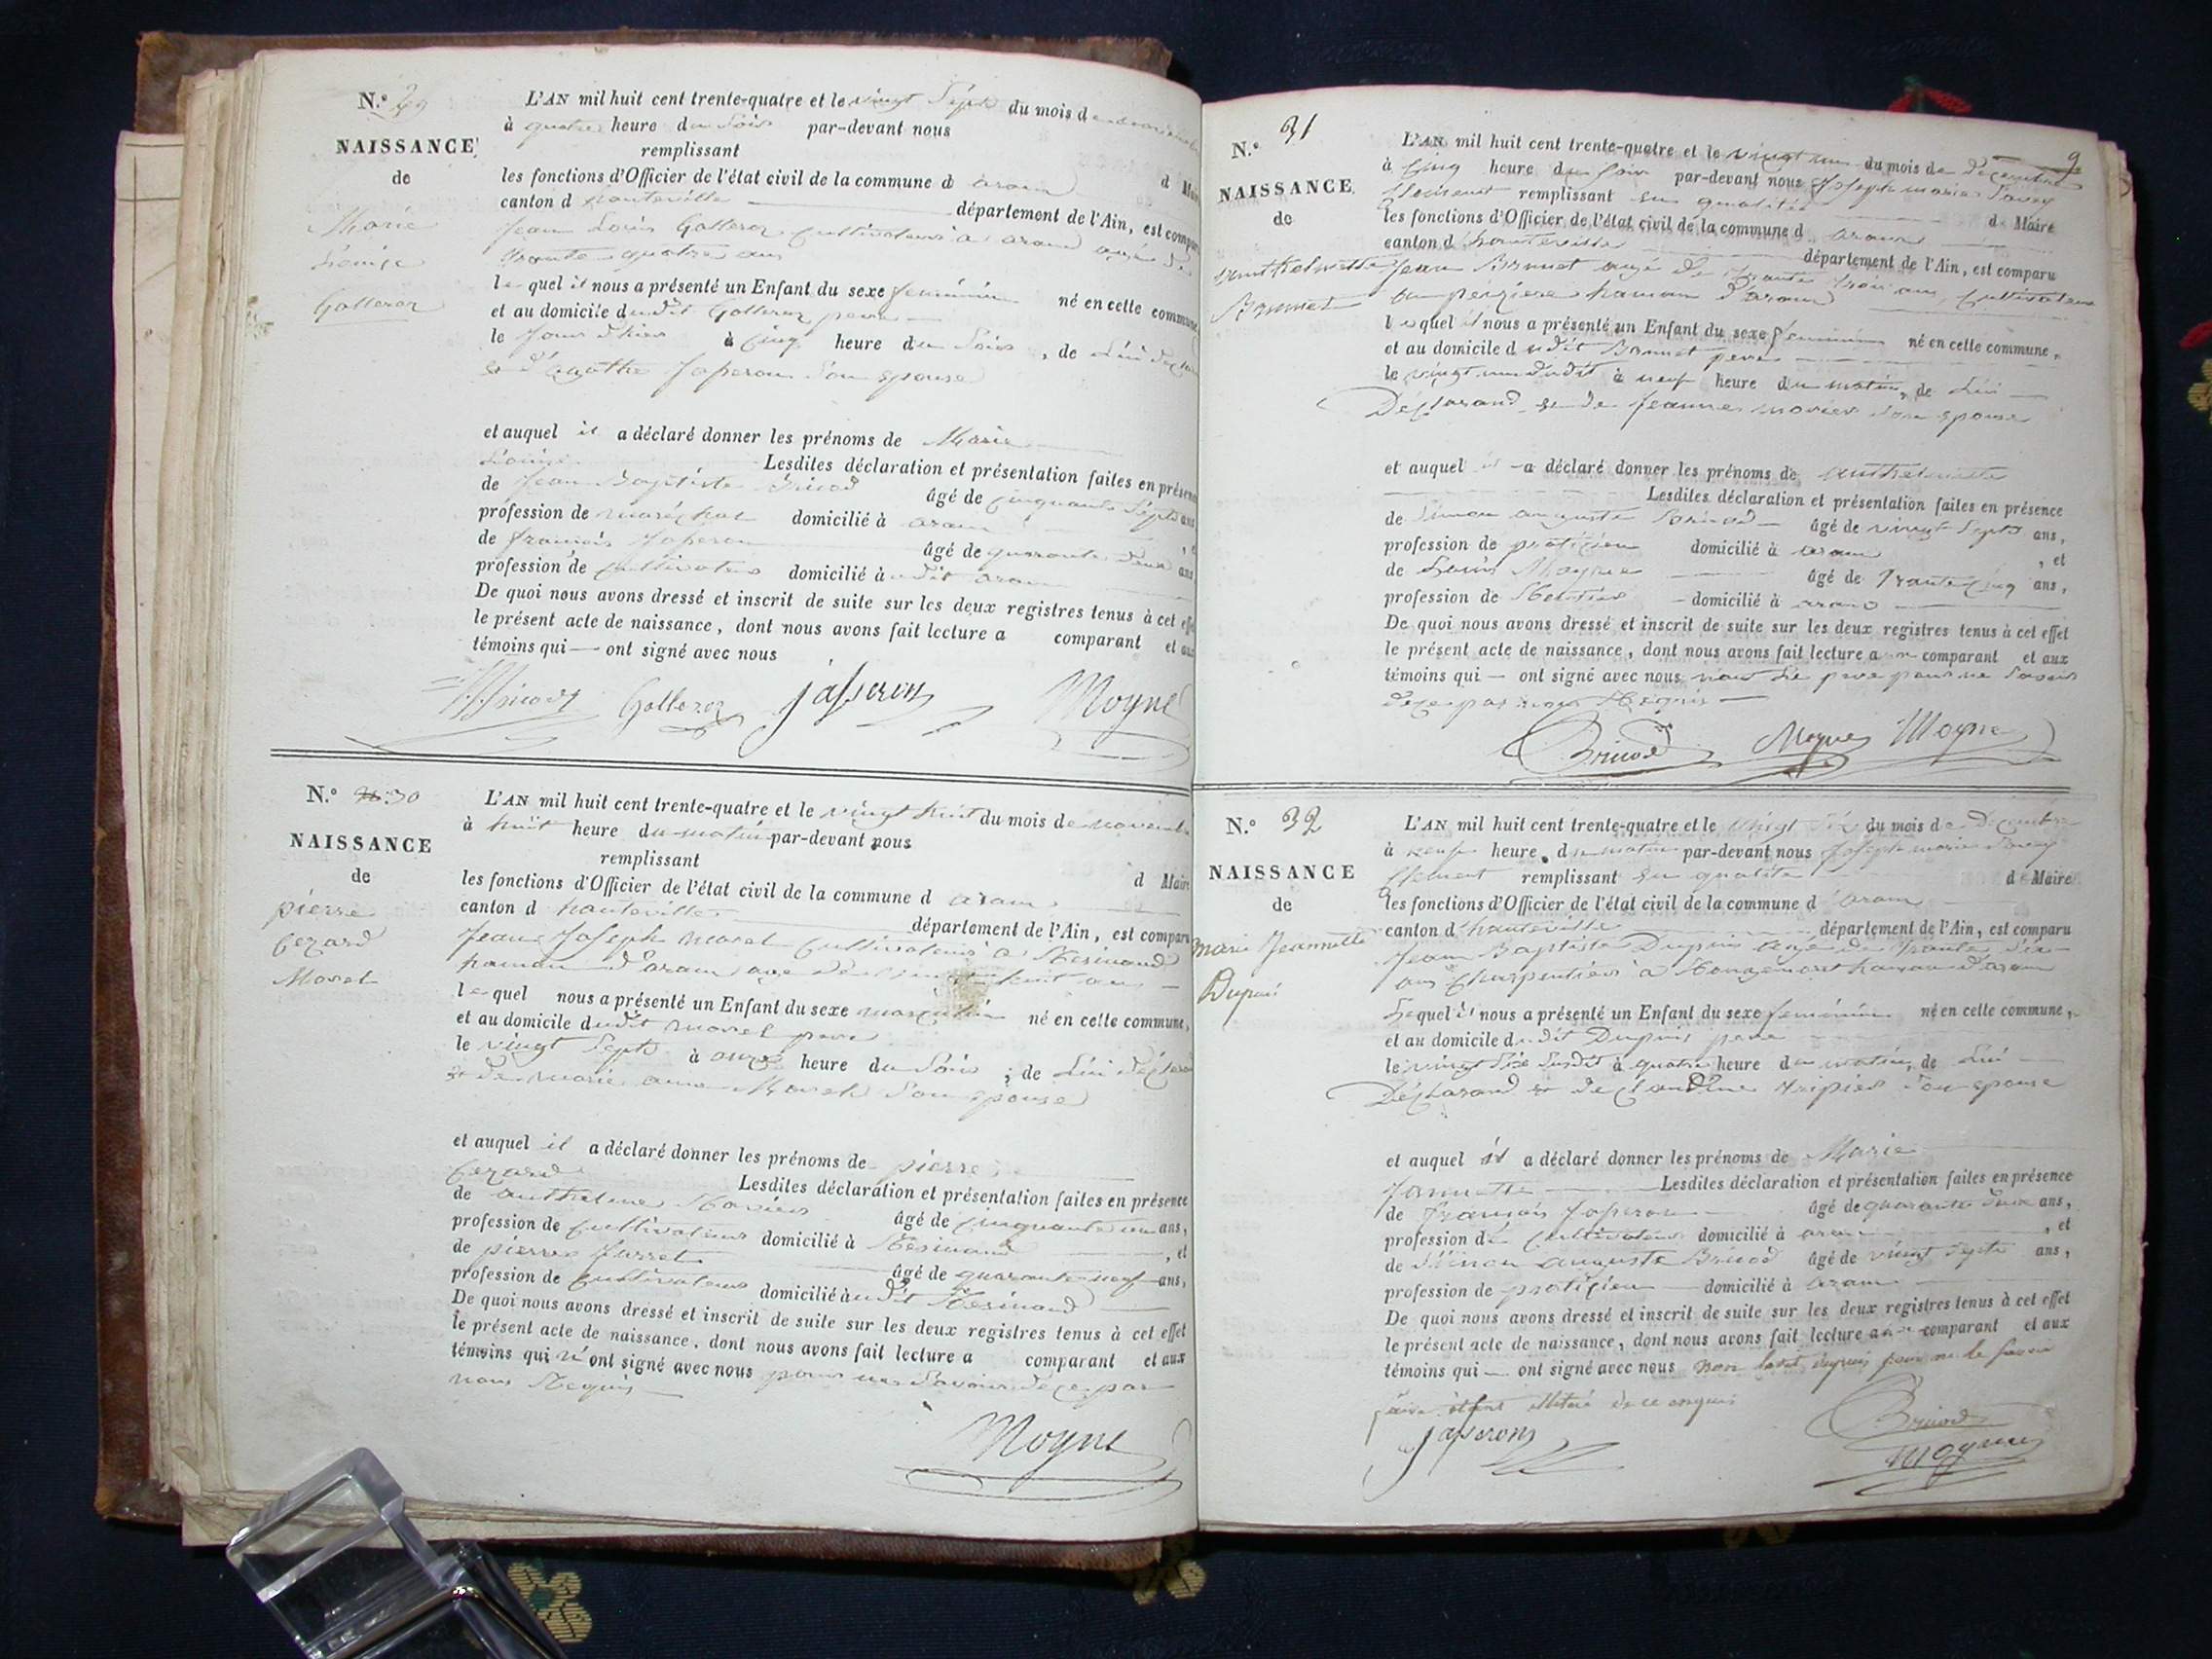 N.º 29
NAISSANCE
de
Marie
Louise
Golleroz
L'AN mil huit cent trente-quatre et le vingt Sept du mois de
à quatre heure du Soir par-devant nous
remplissant
les fonctions d'Officier de l'état civil de la commune d aran d Maire
canton d hauteville département de l'Ain, est comparu
Jean Louis Golleroz Cultivateur à aran agé de
trante quatre ans
lequel il nous a présenté un Enfant du sexe feminin né en cette commune
et au domicile dudit Golleroz pere
le Jour d'hier à Cinq heure du Soir, de Lui
et d'agathe Japeron Son epouse
et auquel il a déclaré donner les prénoms de Marie
Louise Lesdites déclaration et présentation faites en présence
de Jean Baptiste Bricod âgé de Cinquante Sept ans
profession de maréchal domicilié à aran
de francois Japeron âgé de quarante deux ans
profession de Cultivateur domicilié à udit aran
De quoi nous avons dressé et inscrit de suite sur les deux registres tenus à cet effet
le présent acte de naissance, dont nous avons fait lecture a comparant et aux
témoins qui — ont signé avec nous
Bricod Golleroz Jasseron Moyne
N.º 30
NAISSANCE
de
pierre
Cezard
Morel
L'AN mil huit cent trente-quatre et le vingt huit du mois de novembre
à huit heure du matin par-devant nous
remplissant
les fonctions d'Officier de l'état civil de la commune d aran d Maire
canton d hauteville département de l'Ain, est comparu
Jean Joseph morel Cultivateur à Resinand
hamau d'aran agé de huit ans
lequel nous a présenté un Enfant du sexe masculin né en cette commune,
et au domicile dudit morel pere
le vingt Sept à onze heure du Soir; de Lui
et de marie anne Morel Son epouse
et auquel il a déclaré donner les prénoms de pierre
Cezard Lesdites déclaration et présentation faites en présence
de anthelme âgé de Cinquante un ans,
profession de Cultivateur domicilié à Resinand, et
de pierre Jurret âgé de quarante neuf ans,
profession de Cultivateur domicilié à udit Resinand
De quoi nous avons dressé et inscrit de suite sur les deux registres tenus à cet effet
le présent acte de naissance, dont nous avons fait lecture a comparant et aux
témoins qui n'ont signé avec nous pour ne Savoir de ce par
nous Requis
Moyne
9
N.º 31
NAISSANCE
de
anthelmette
Bonnet
L'AN mil huit cent trente-quatre et le vingt un du mois de Decembre
à Cinq heure du Soir par-devant nous Joseph marie Savey
Clement remplissant en qualité d Maire
les fonctions d'Officier de l'état civil de la commune d aran
canton d hauteville département de l'Ain, est comparu
Jean Bonnet agé de trante trois ans, Cultivateur
hamau d'aran
lequel il nous a présenté un Enfant du sexe feminin né en cette commune,
et au domicile dudit Bonnet pere
le vingt un dudit à neuf heure du matin, de Lui
Déclarand et de Jeanne Son epouse
et auquel il a déclaré donner les prénoms de anthelmette
Lesdites déclaration et présentation faites en présence
de Simon auguste Bricod âgé de vingt Sept ans,
profession de praticien domicilié à aran, et
de Louis Moyne âgé de trante Cinq ans,
profession de Rentier domicilié à aran
De quoi nous avons dressé et inscrit de suite sur les deux registres tenus à cet effet
le présent acte de naissance, dont nous avons fait lecture au comparant et aux
témoins qui — ont signé avec nous non Le pere pour ne Savoir
de ce par nous Requis
Bricod Moyne Moyne
N.º 32
NAISSANCE
de
marie Jeannette
Dupuis
L'AN mil huit cent trente-quatre et le vingt Six du mois de Decembre
à neuf heure du matin par-devant nous Joseph marie Savey
Clement remplissant en qualité d Maire
les fonctions d'Officier de l'état civil de la commune d aran
canton d hauteville département de l'Ain, est comparu
Jean Baptiste Dupuis agé de trante Six
ans Charpentier à Rougemont hamau d'aran
Lequel il nous a présenté un Enfant du sexe feminin né en cette commune,
et au domicile dudit Dupuis pere
le vingt Six Susdit à quatre heure du matin, de Lui
Déclarand et de Claudine tripier Son epouse
et auquel il a déclaré donner les prénoms de Marie
Jannette Lesdites déclaration et présentation faites en présence
de francois Japeron âgé de quarante deux ans,
profession de Cultivateur domicilié à aran, et
de Simon auguste Bricod âgé de vingt Septe ans,
profession de praticien domicilié à aran
De quoi nous avons dressé et inscrit de suite sur les deux registres tenus à cet effet
le présent acte de naissance, dont nous avons fait lecture au comparant et aux
témoins qui — ont signé avec nous non ledit dupuis pour ne le savoir
de ce enquis
Jasseron Bricod
Moyne